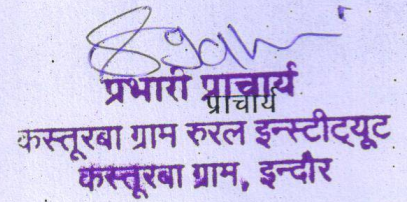 प्रभारी प्राचार्य
प्राचार्य
कस्तूरबा ग्राम रुरल इन्स्टीट्यूट
कस्तूरबा ग्राम, इन्दौर